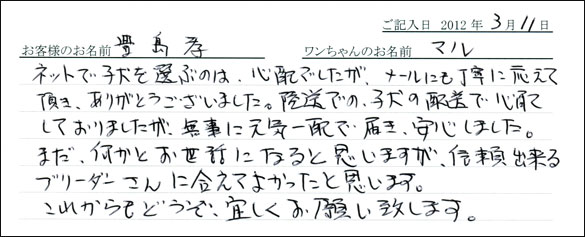 ご記入日 2012年 3月11日
お客様のお名前 豊島孝 ワンちゃんのお名前 マル
ネットで子犬を選ぶのは、心配でしたが、メールにも丁寧に応えて
頂き、ありがとうございました。陸送での、子犬の配送で心配
しておりましたが、無事に元気一配で届き、安心しました。
まだ、何かとお世話になると思いますが、信頼出来る
ブリーダーさんに合えてよかったと思います。
これからもどうぞ、宜しくお願い致します。